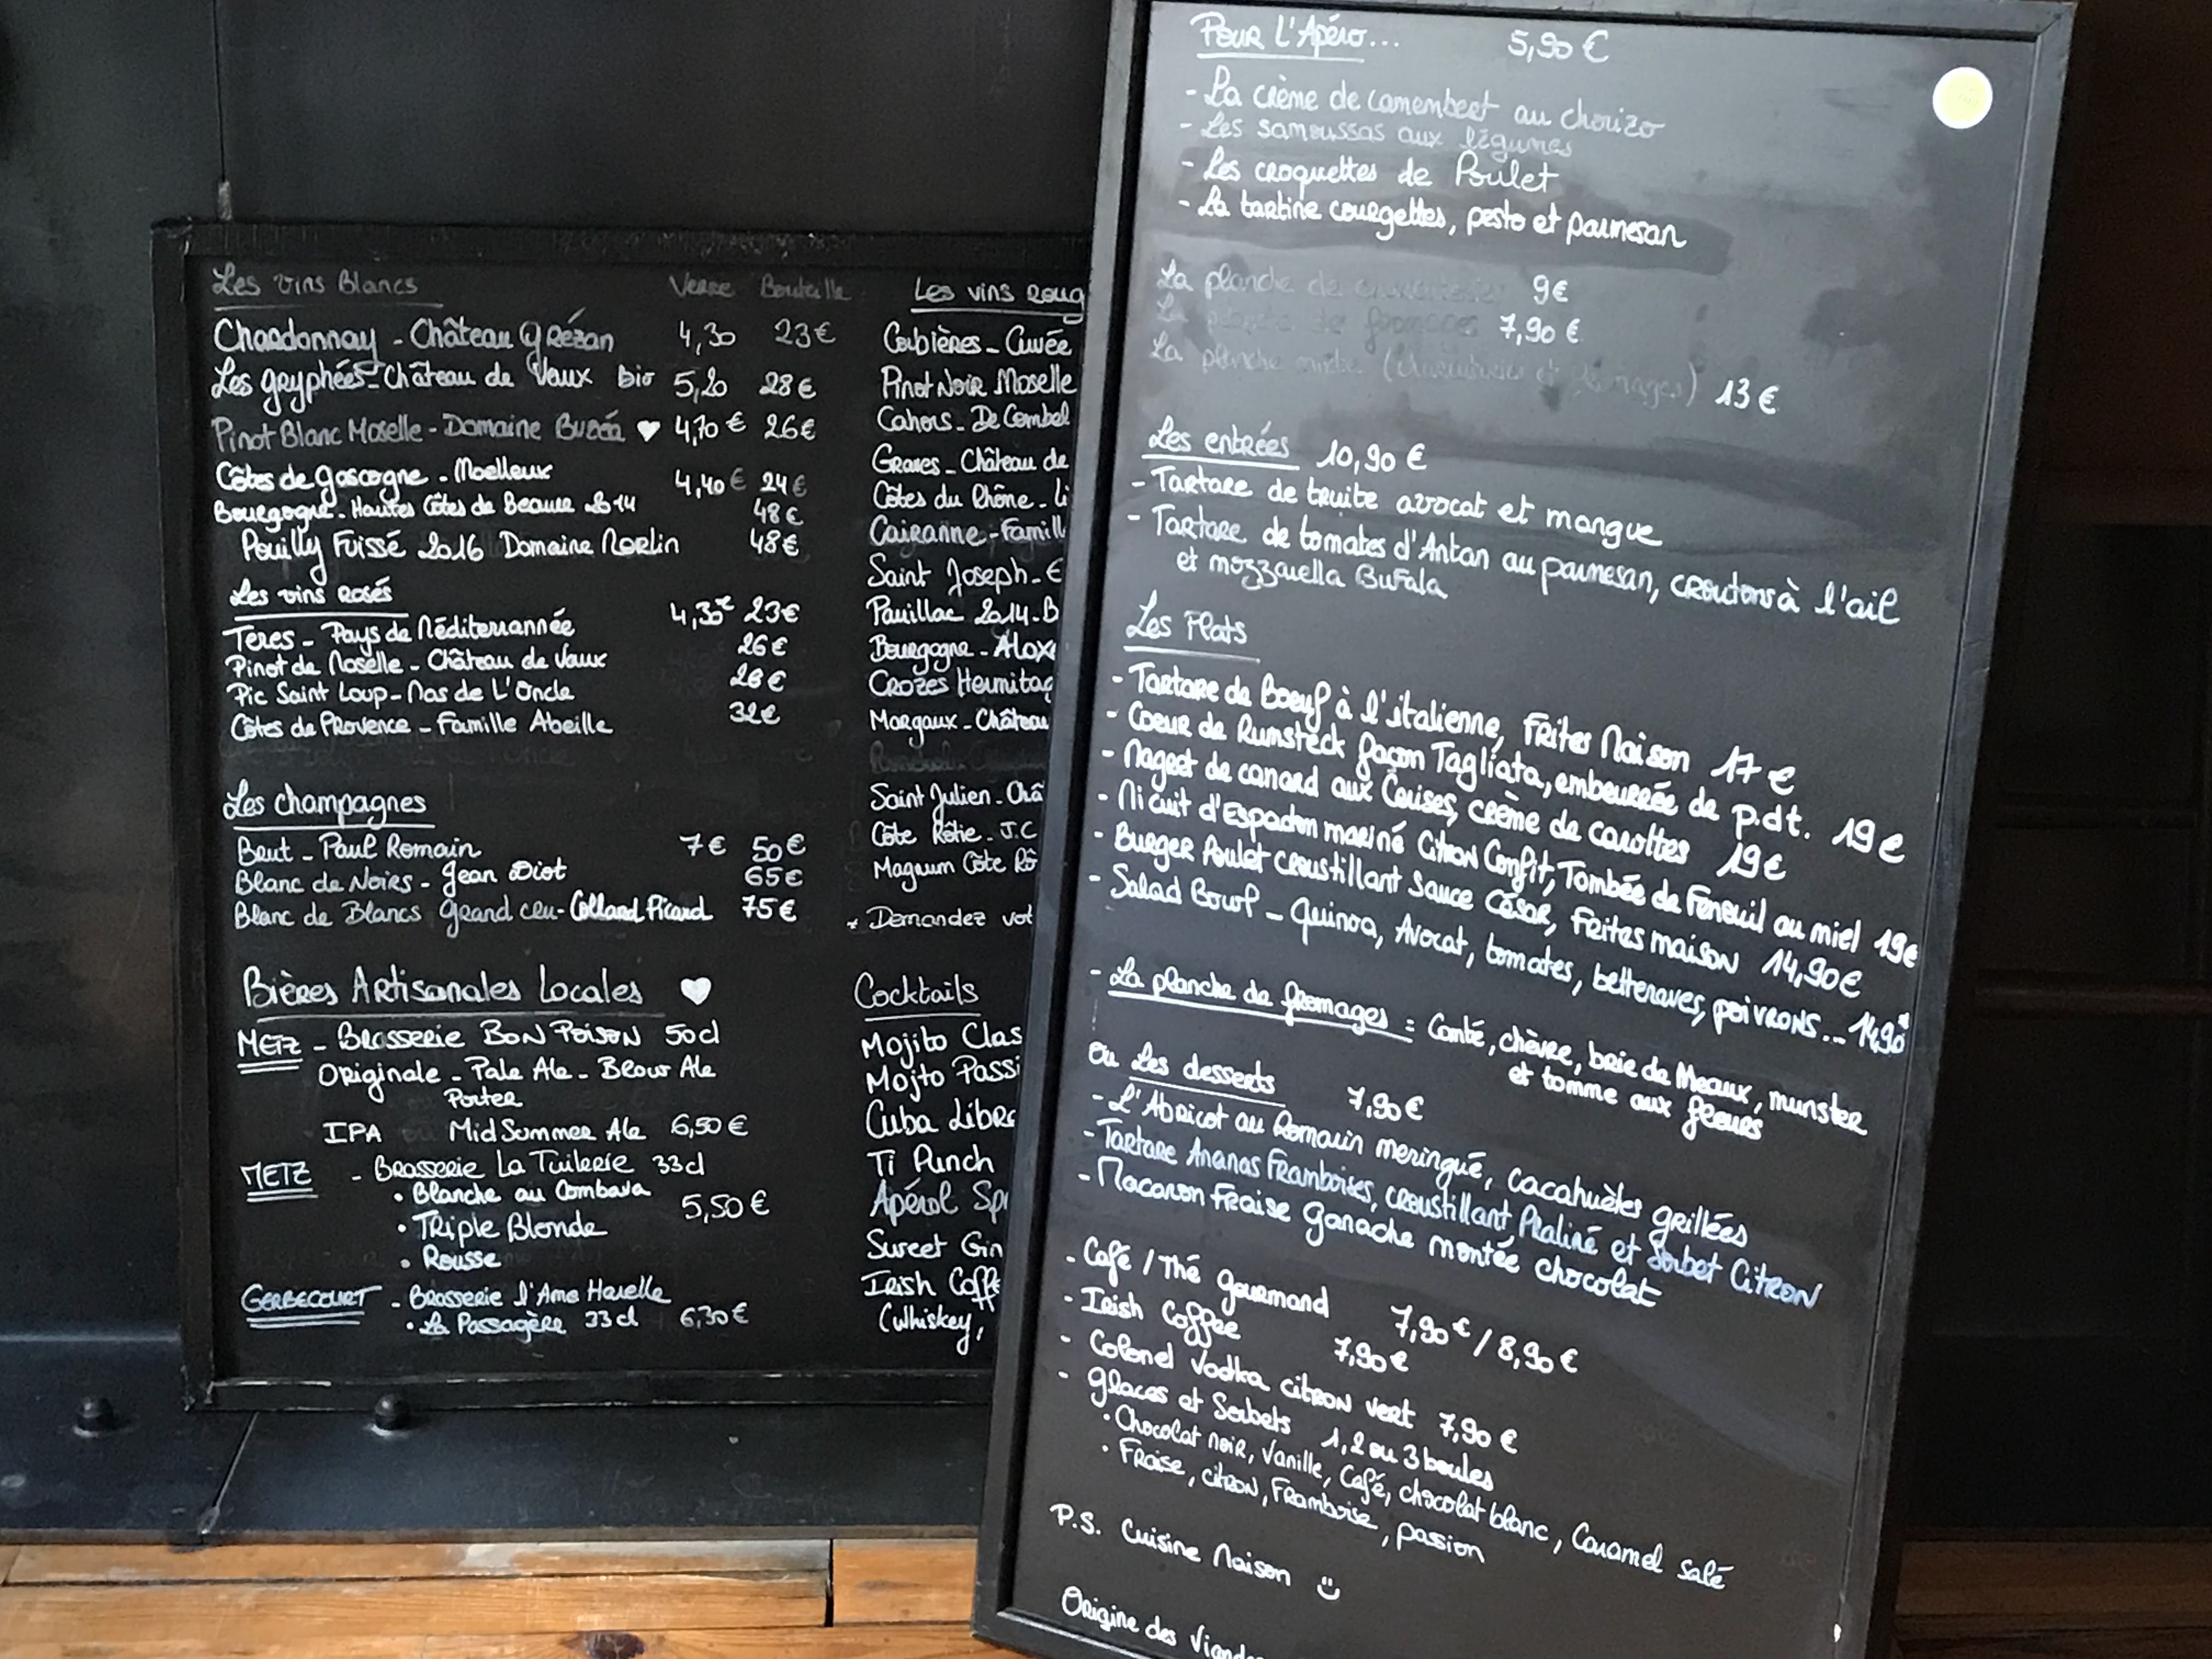 Les vins Blancs Verre Bouteille
Chardonnay - Château Grézan 4,30 23€
Les gryphées - Château de Vaux Bio 5,20 28€
Pinot Blanc Moselle - Domaine Buzéa ♥ 4,70€ 26€
Côtes de Gascogne - Moelleux 4,40€ 24€
Bourgogne - Hautes Côtes de Beaune 2014 48€
Pouilly Fuissé 2016 Domaine Norlin 48€
Les vins rosés
Teres - Pays de Méditerrannée 4,30€ 23€
Pinot de Moselle - Château de Vaux 26€
Pic Saint Loup - Mas de L'Oncle 26€
Côtes de Provence - Famille Abeille 32€
Les champagnes
Brut - Paul Romain 7€ 50€
Blanc de Noirs - Jean Diot 65€
Blanc de Blancs Grand cru - Colland Picard 75€
Bières Artisanales Locales ♥
METZ - Brasserie BON POISON 50cl
Originale - Pale Ale - Brown Ale
Porter
IPA ou MidSummer Ale 6,50€
METZ - Brasserie La Tuilerie 33cl
• Blanche au Combava
5,50€
• Triple Blonde
• Rousse
GERBECOURT - Brasserie l'Ame Harelle
• La Passagère 33cl 6,30€
Les vins Roug
Corbières - Cuvée
Pinot Noir Moselle
Cahors - De Combel
Graves - Château de
Côtes du Rhône - Li
Cairanne - Famill
Saint Joseph - E
Pauillac 2014 - B
Bourgogne - Alox
Crozes Hermitag
Margaux - Château
Saint Julien - Châ
Côte Rôtie - J.C
Magnum Côte Rô
* Demandez vot
Cocktails
Mojito Clas
Mojto Passi
Cuba Libre
Ti Punch
Apérol Spr
Sweet Gin
Irish Coffe
(Whiskey,
Pour L'Apéro... 5,90€
- La crème de camembert au chorizo
- Les samoussas aux légumes
- Les croquettes de Poulet
- La tartine courgettes, pesto et parmesan
La planche de charcuteries 9€
La planche de fromages 7,90€
La planche mixte (charcuteries et fromages) 13€
Les entrées 10,90€
- Tartare de truite avocat et mangue
- Tartare de tomates d'Antan au parmesan, croutons à l'ail
et mozzarella Bufala
Les Plats
- Tartare de Boeuf à l'italienne, Frites Maison 17€
- Coeur de Rumsteck façon Tagliata, embeurrée de p.d.t. 19€
- Magret de canard aux Cerises, crème de carottes 19€
- Mi cuit d'Espadon mariné Citron Confit, Tombée de Fenouil au miel 19€
- Burger Poulet croustillant Sauce César, Frites maison 14,90€
- Salad Bowl - Quinoa, Avocat, tomates, betteraves, poivrons... 14,90€
- La planche de fromages = Comté, chèvre, brie de Meaux, munster
et tomme aux fleurs
ou Les desserts 7,90€
- L'Abricot au Romarin meringué, cacahuètes grillées
- Tartare Ananas Framboises, croustillant Praliné et Sorbet Citron
- Macaron Fraise Ganache montée chocolat
- Café / Thé gourmand 7,90€ / 8,90€
- Irish Coffee 7,90€
- Colonel Vodka citron vert 7,90€
- Glaces et Sorbets 1, 2 ou 3 boules
• Chocolat noir, Vanille, Café, chocolat blanc, Caramel salé
• Fraise, citron, Framboise, passion
P.S. Cuisine Maison
Origine des Viandes